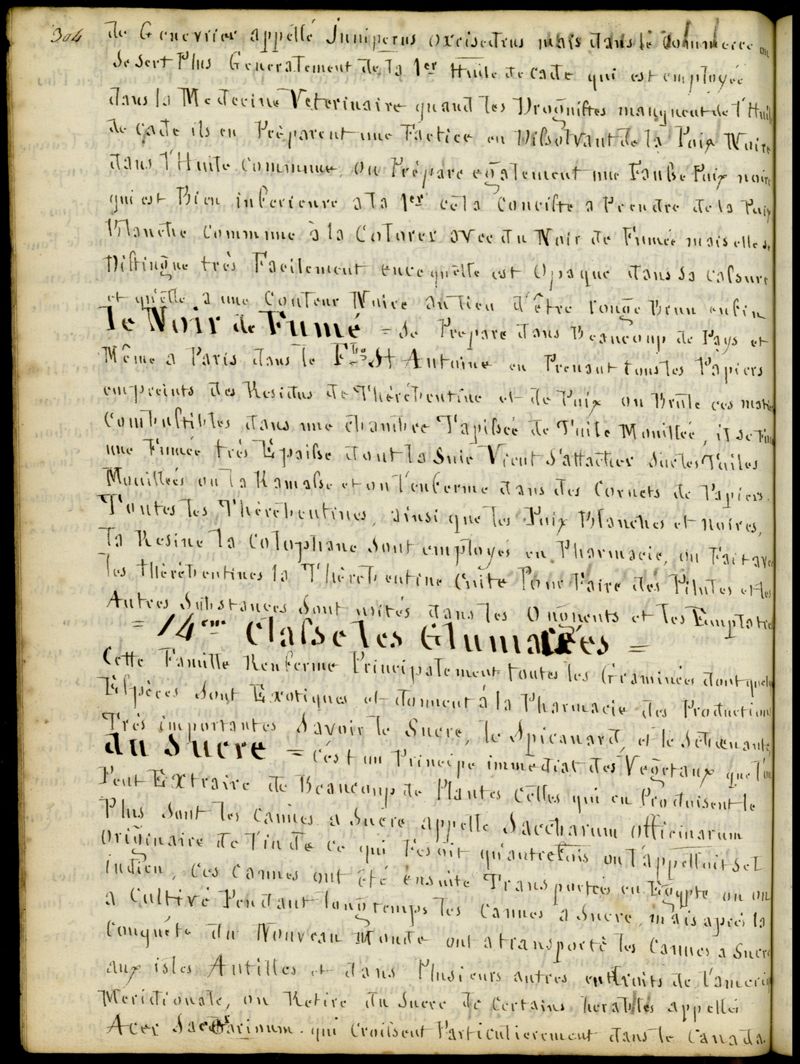 304
de Genevrier appellé Juniperus oxcisedrus mais dans le Commerce on
se sert Plus Generalement de la 1er Huile de cade qui est employée
dans la Medecine Veterinaire quand les Droguistes manquent de l'Huil
de Cade ils en Préparent une Factice en Dissolvant de la Poix Noire
dans l'Huile Commune, On Prépare egalement une Fausse Poix noire
qui est Bien inferieure a la 1er cela Consiste a Prendre de la Poix
Blanche Commune à la Colorer avec du Noir de Fumée mais elle se
Distingue très Facilement en ce qu'elle est Opaque dans sa cassure
et qu'elle a une Couleur Noire au lieu d'être rouge Brun enfin
le Noir de Fumé = se Prepare dans Beaucoup de Pays et
Même a Paris dans le Fbg St Antoine en Prenant tous les Papiers
empreints des Residus de Thérébentine et de Poix on Brule ces mati
Combustibles dans une chambre Tapissée de Toile Mouillée, il se Fait
une Fumée très Epaisse dont la Suie Vient S'attacher Sur les Toiles
Mouillées on la Ramasse et on l'enferme dans des Cornets de Papiers.
Toutes les Thérébentines, ainsi que les Poix Blanches et noires,
la Resine la Colophane Sont employés en Pharmacie, on Fait avec
les thérébentines la Thérébentine Cuite Pour Faire des Pilules et les
Autres Substances Sont usités dans les Onguents et les Emplatre
= 14eme Classe les Glumacées =
Cette Famille Renferme Principalement toutes les Graminées dont quelq
Espèces Sont Exotiques et donnent à la Pharmacie des Production
Très importantes Savoir le Sucre, le Spicanard, et le Schœnante
du Sucre = C'est un Principe immediat des Vegetaux que l'on
Peut Extraire de Beaucoup de Plantes Celles qui en Produisent le
Plus Sont les Cannes a Sucre appellé Saccharum Officinarum
Originaire de l'inde ce qui Fesoit qu'autrefois on l'appelloit Sel
indien, Ces Cannes ont été ensuite Transportés en Egypte ou on
a Cultivé Pendant longtemps les Cannes a Sucre, mais après la
Conquéte du Nouveau Monde on a transporté les Cannes a Sucre
aux isles Antilles et dans Plusieurs autres endroits de l'ameriq
Meridionale, on Retire du Sucre de Certains herables appellés
Acer Saccharinum. qui Croissent Particulierement dans le Canada.